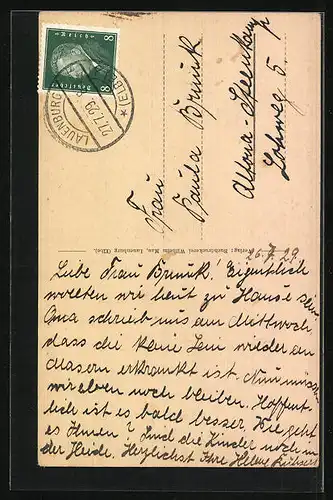 8 8
Deutsches Reich
LAUENBURG
27.7.29
* (ELBE)
Frau
Paula Brunck
Altona-Speenkamp
Lohweg 5.
Verlag: Buchdruckerei Wilhelm Mau, Lauenburg (Elbe).
26.7.29.
Liebe Frau Brunck! Eigentlich
wollten wir heut zu Hause sein
Oma schrieb uns am Mittwoch,
dass die kleine Leni wieder an
Masern erkrankt ist. Nun müssen
wir eben noch bleiben. Hoffent-
lich ist es bald besser. Wie geht
es Ihnen? Sind die Kinder noch in
der Heide. Herzlichst Ihre Helene